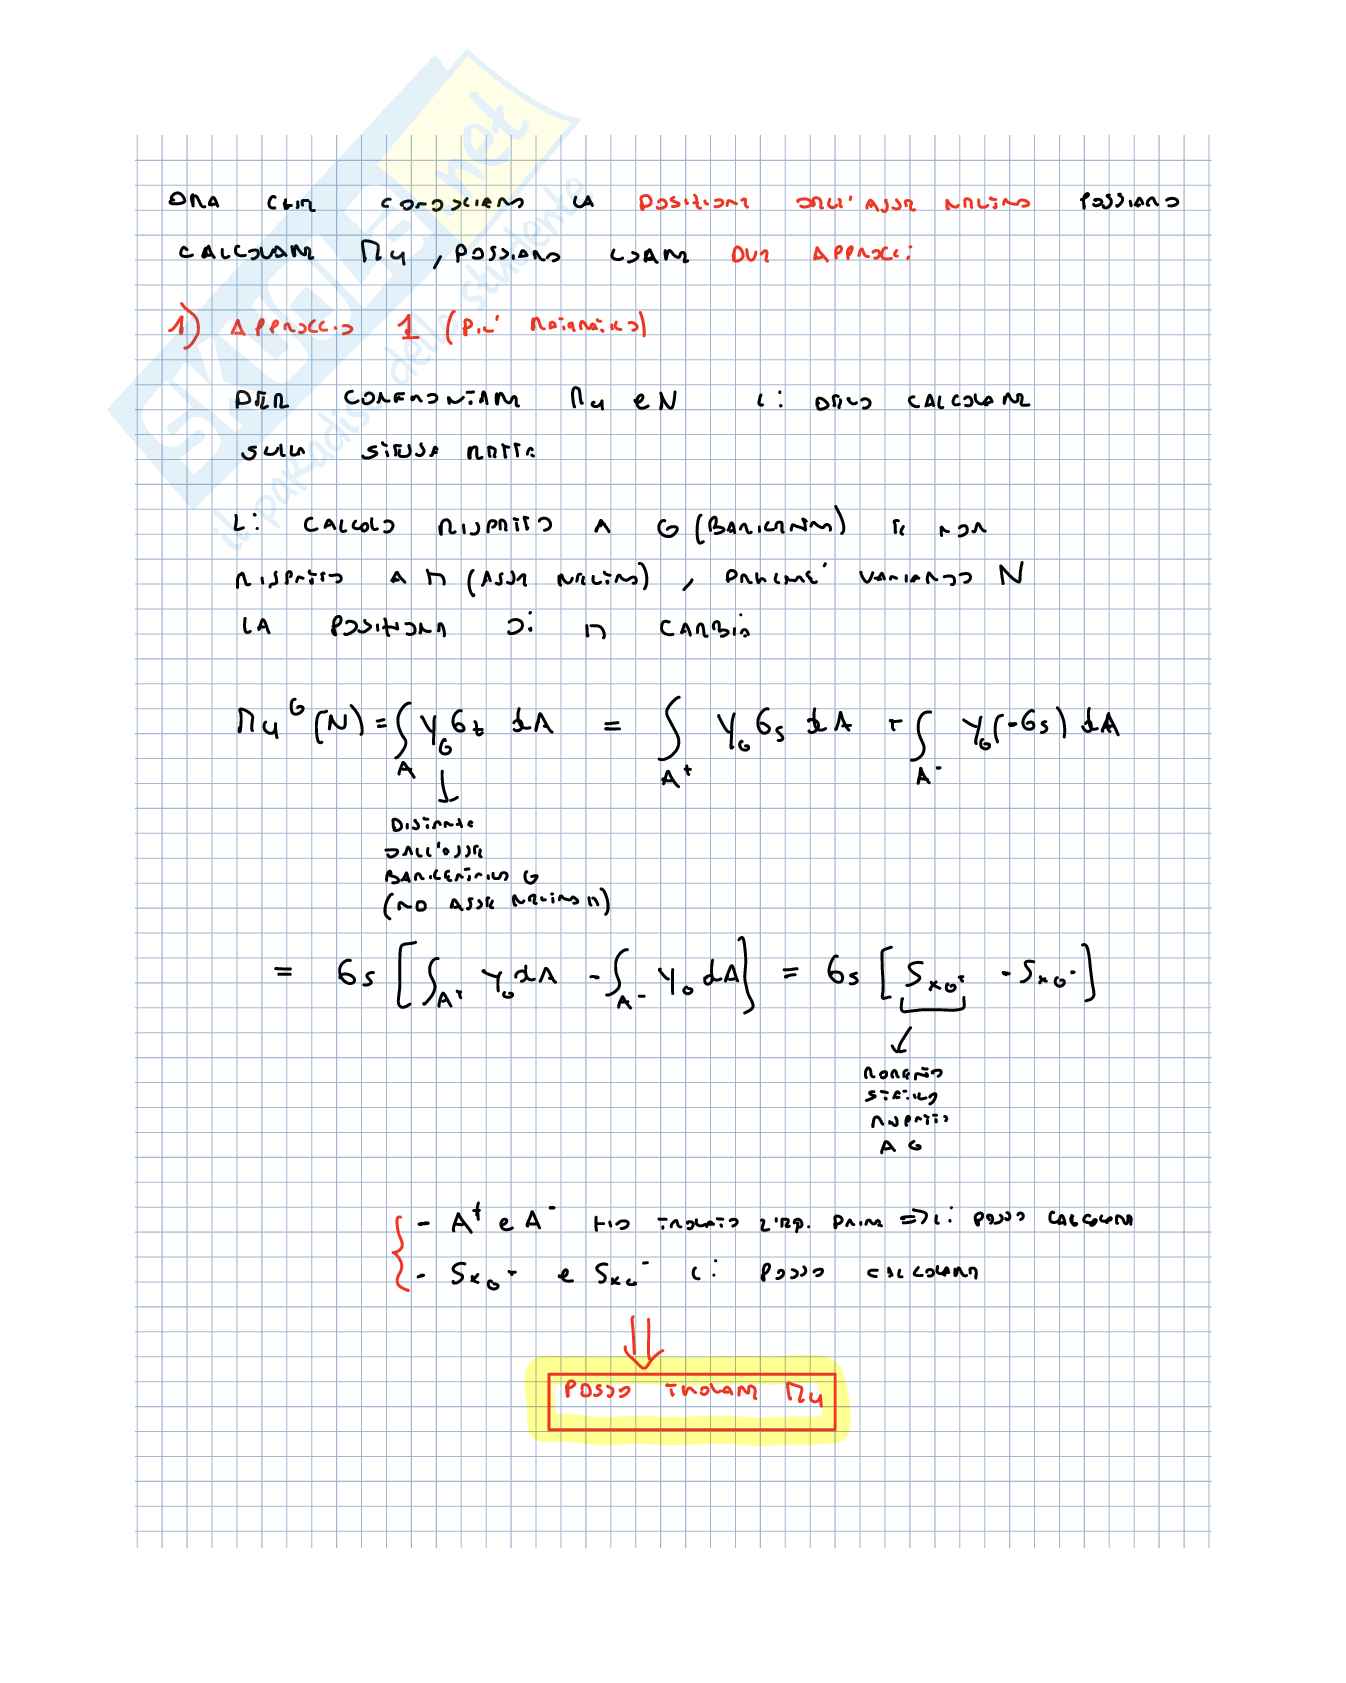 ORA CHE CONOSCIAMO LA POSIZIONE DELL'ASSE NEUTRO POSSIAMO
CALCOLARE Mu, POSSIAMO USARE DUE APPROCCI
1) APPROCCIO 1 (PIU' MATEMATICO)
PER CONFRONTARE Mu e N LI DEVO CALCOLARE
SULLA STESSA RETTA
LI CALCOLO RISPETTO A G (BARICENTRO) E NON
RISPETTO A n (ASSE NEUTRO), PERCHE' VARIANDO N
LA POSIZIONE DI n CAMBIA
Mu^G (N) = ∫_A y_G σ_z dA = ∫_A+ y_G σs dA + ∫_A- y_G (-σs) dA
DISTANZA
DALL'ASSE
BARICENTRICO G
(NO ASSE NEUTRO n)
= σs [∫_A+ y_G dA - ∫_A- y_G dA] = σs [S_xG+ - S_xG-]
MOMENTO
STATICO
RISPETTO
A G
- A+ e A- HO TROVATO L'EQ. PRIMA => LI POSSO CALCOLARE
- S_xG+ e S_xG- LI POSSO CALCOLARE
POSSO TROVARE Mu
SKUOLA.net
il paradiso dello studente